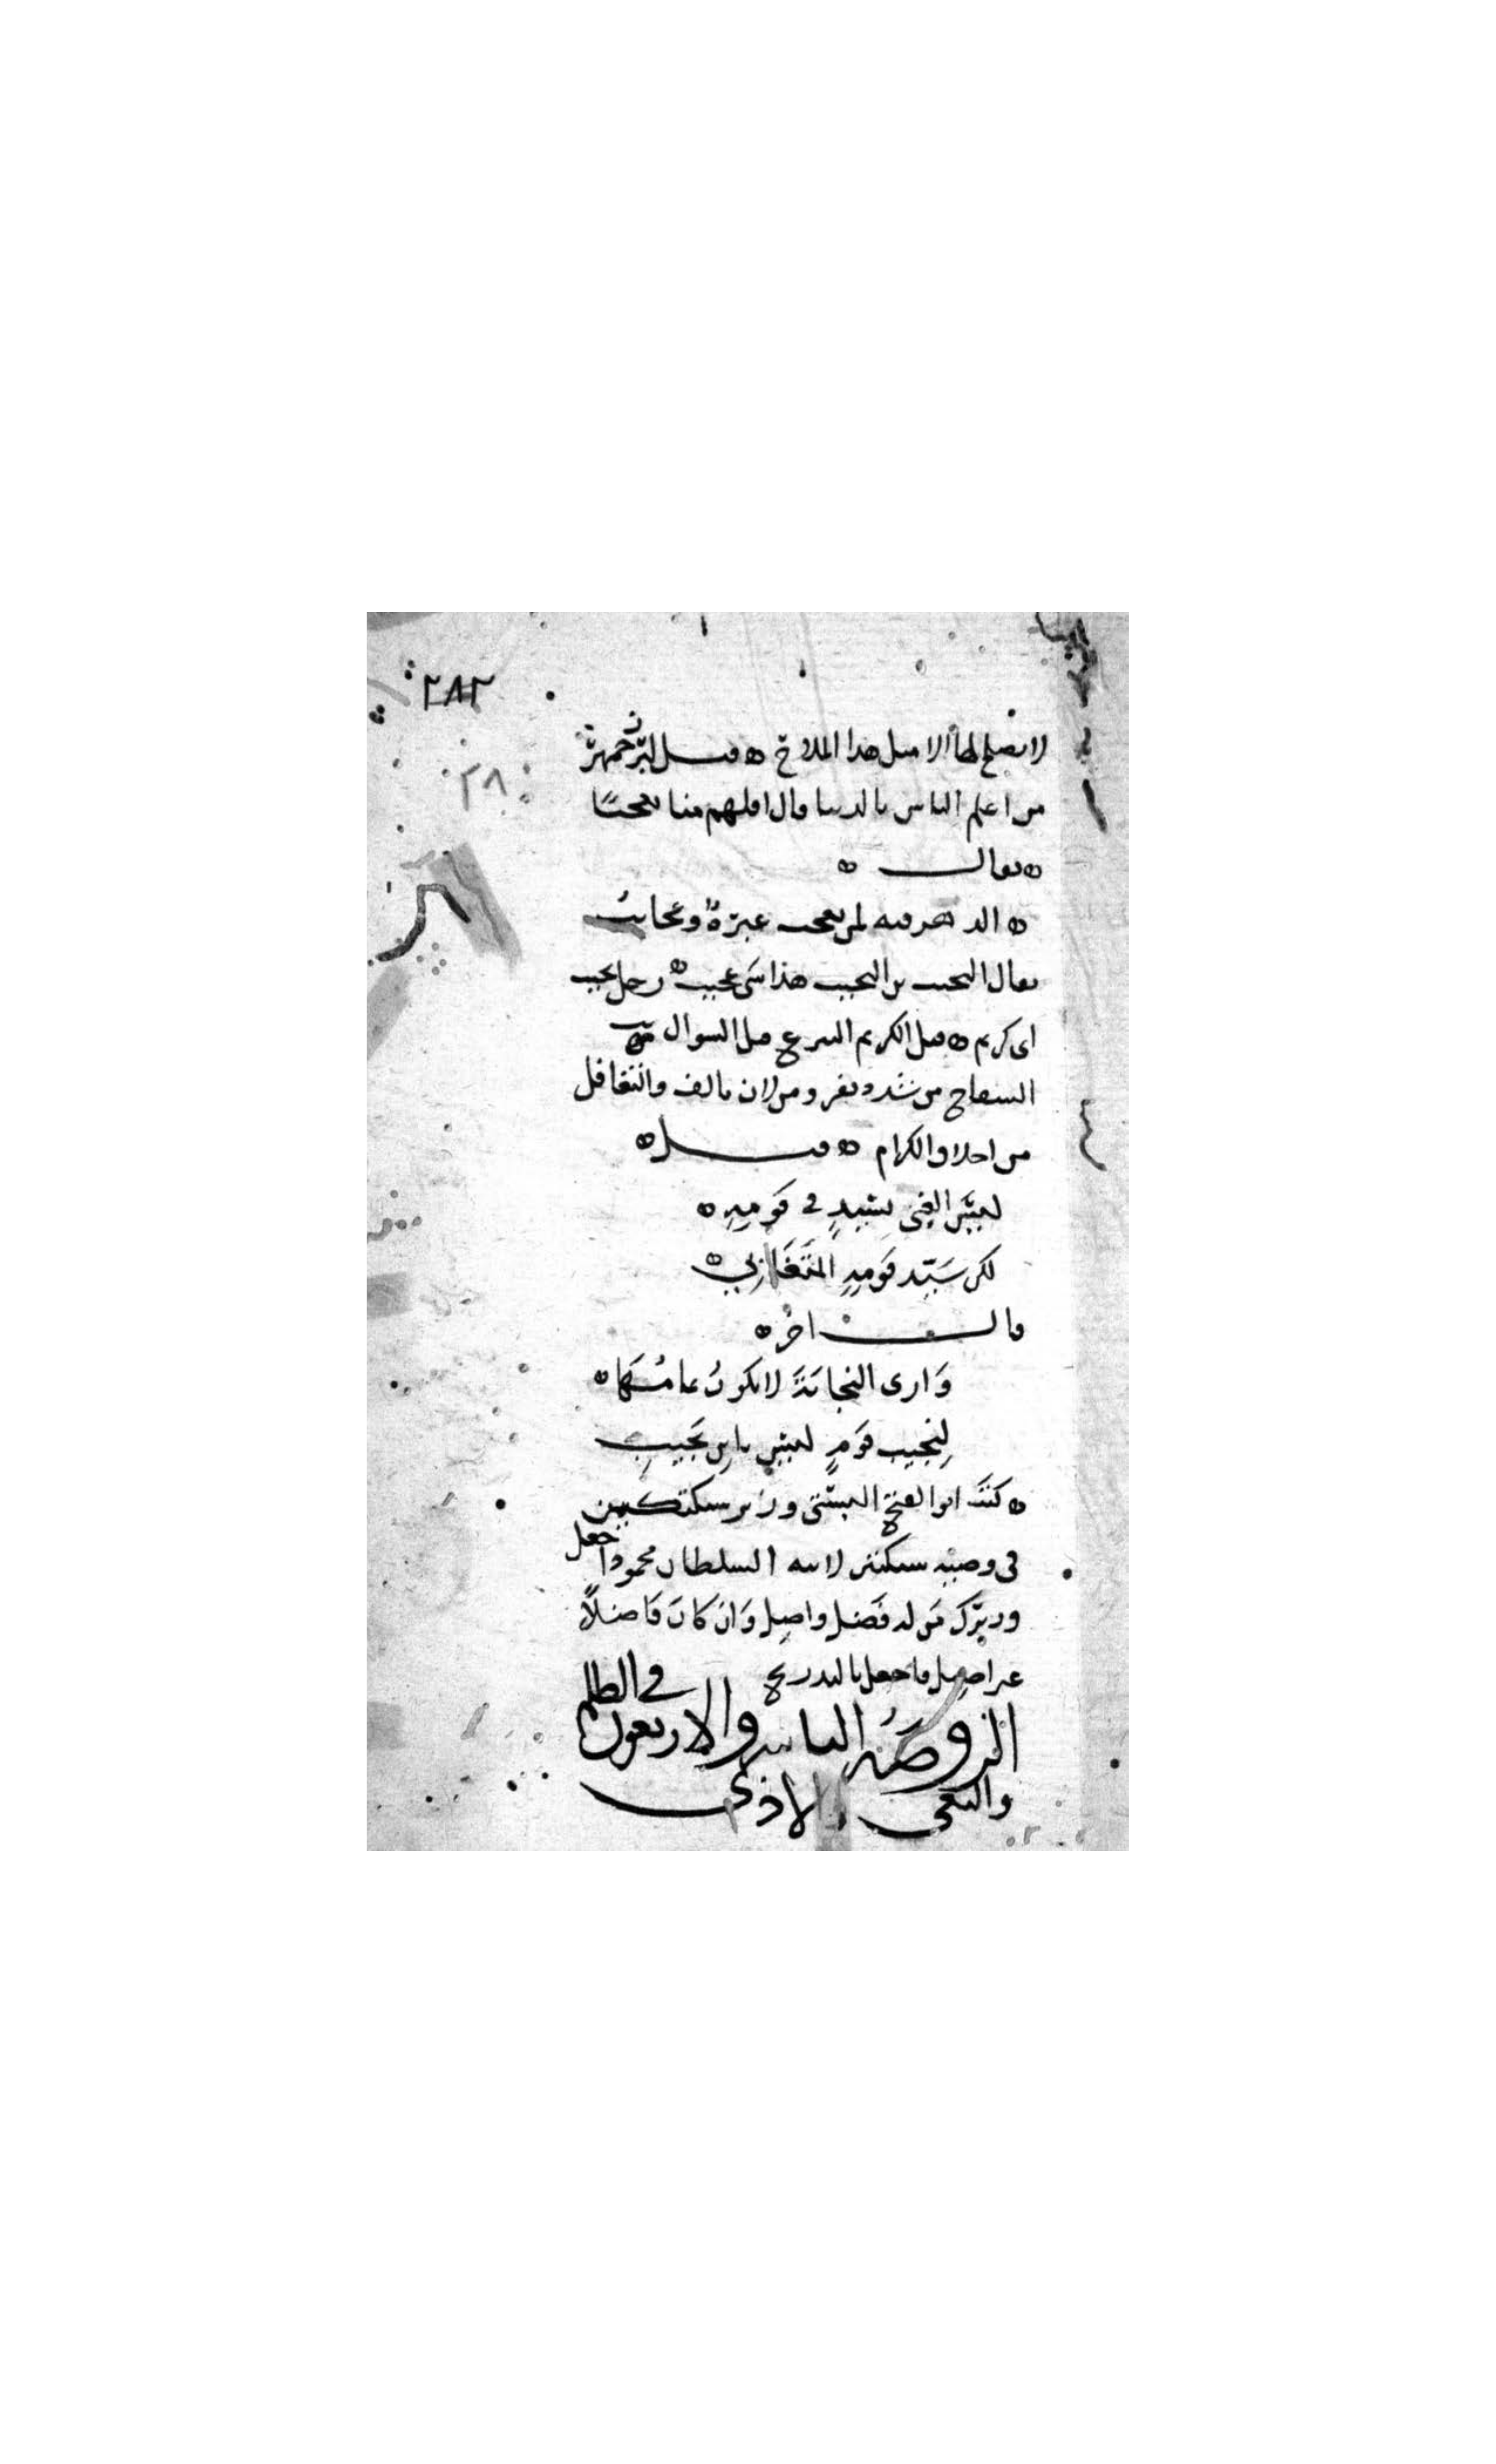 ٢٨٢
لا يصلح لها الا مثل هذا الملاح ه قيل لبزرجمهر
٢٨
من اعلم الناس بالدنيا قال اقلهم منها تعجبًا
ه يقال ه
ه الدهر فيه لمن تعجب عبرةٌ وعجائبُ
يقال العجب بن العجيب هذا شى عجيب ه رجل نجيب
اى كريم ه قيل الكريم السرع قبل السوال
السفاح من شدد نفر ومن لان تالف والتغافل
من اخلاق الكرام ه قيل ه
ليسَ الغبى بسَيدٍ فى قَومِهِ ه
لكن سَيّد قومِهِ المُتَغَابِي ه
قال اخر ه
وَارى النجابَةَ لا يكونُ تمامُهَا ه
لِنجِيبِ قَومٍ ليس بابن نَجِيبِ
ه كتبَ ابو الفتح البستى وزير سبكتكين
فى وصية سبكتكين لابنه السلطان محمود اجعل
وزيرَك مَن له فَضل واصِل وَان كانَ فَاضلاً
غير اصِيل فاجعل بالتدريج
الروضَةُ الثانيه والاربعون فى الظلم
والبغى الاذى